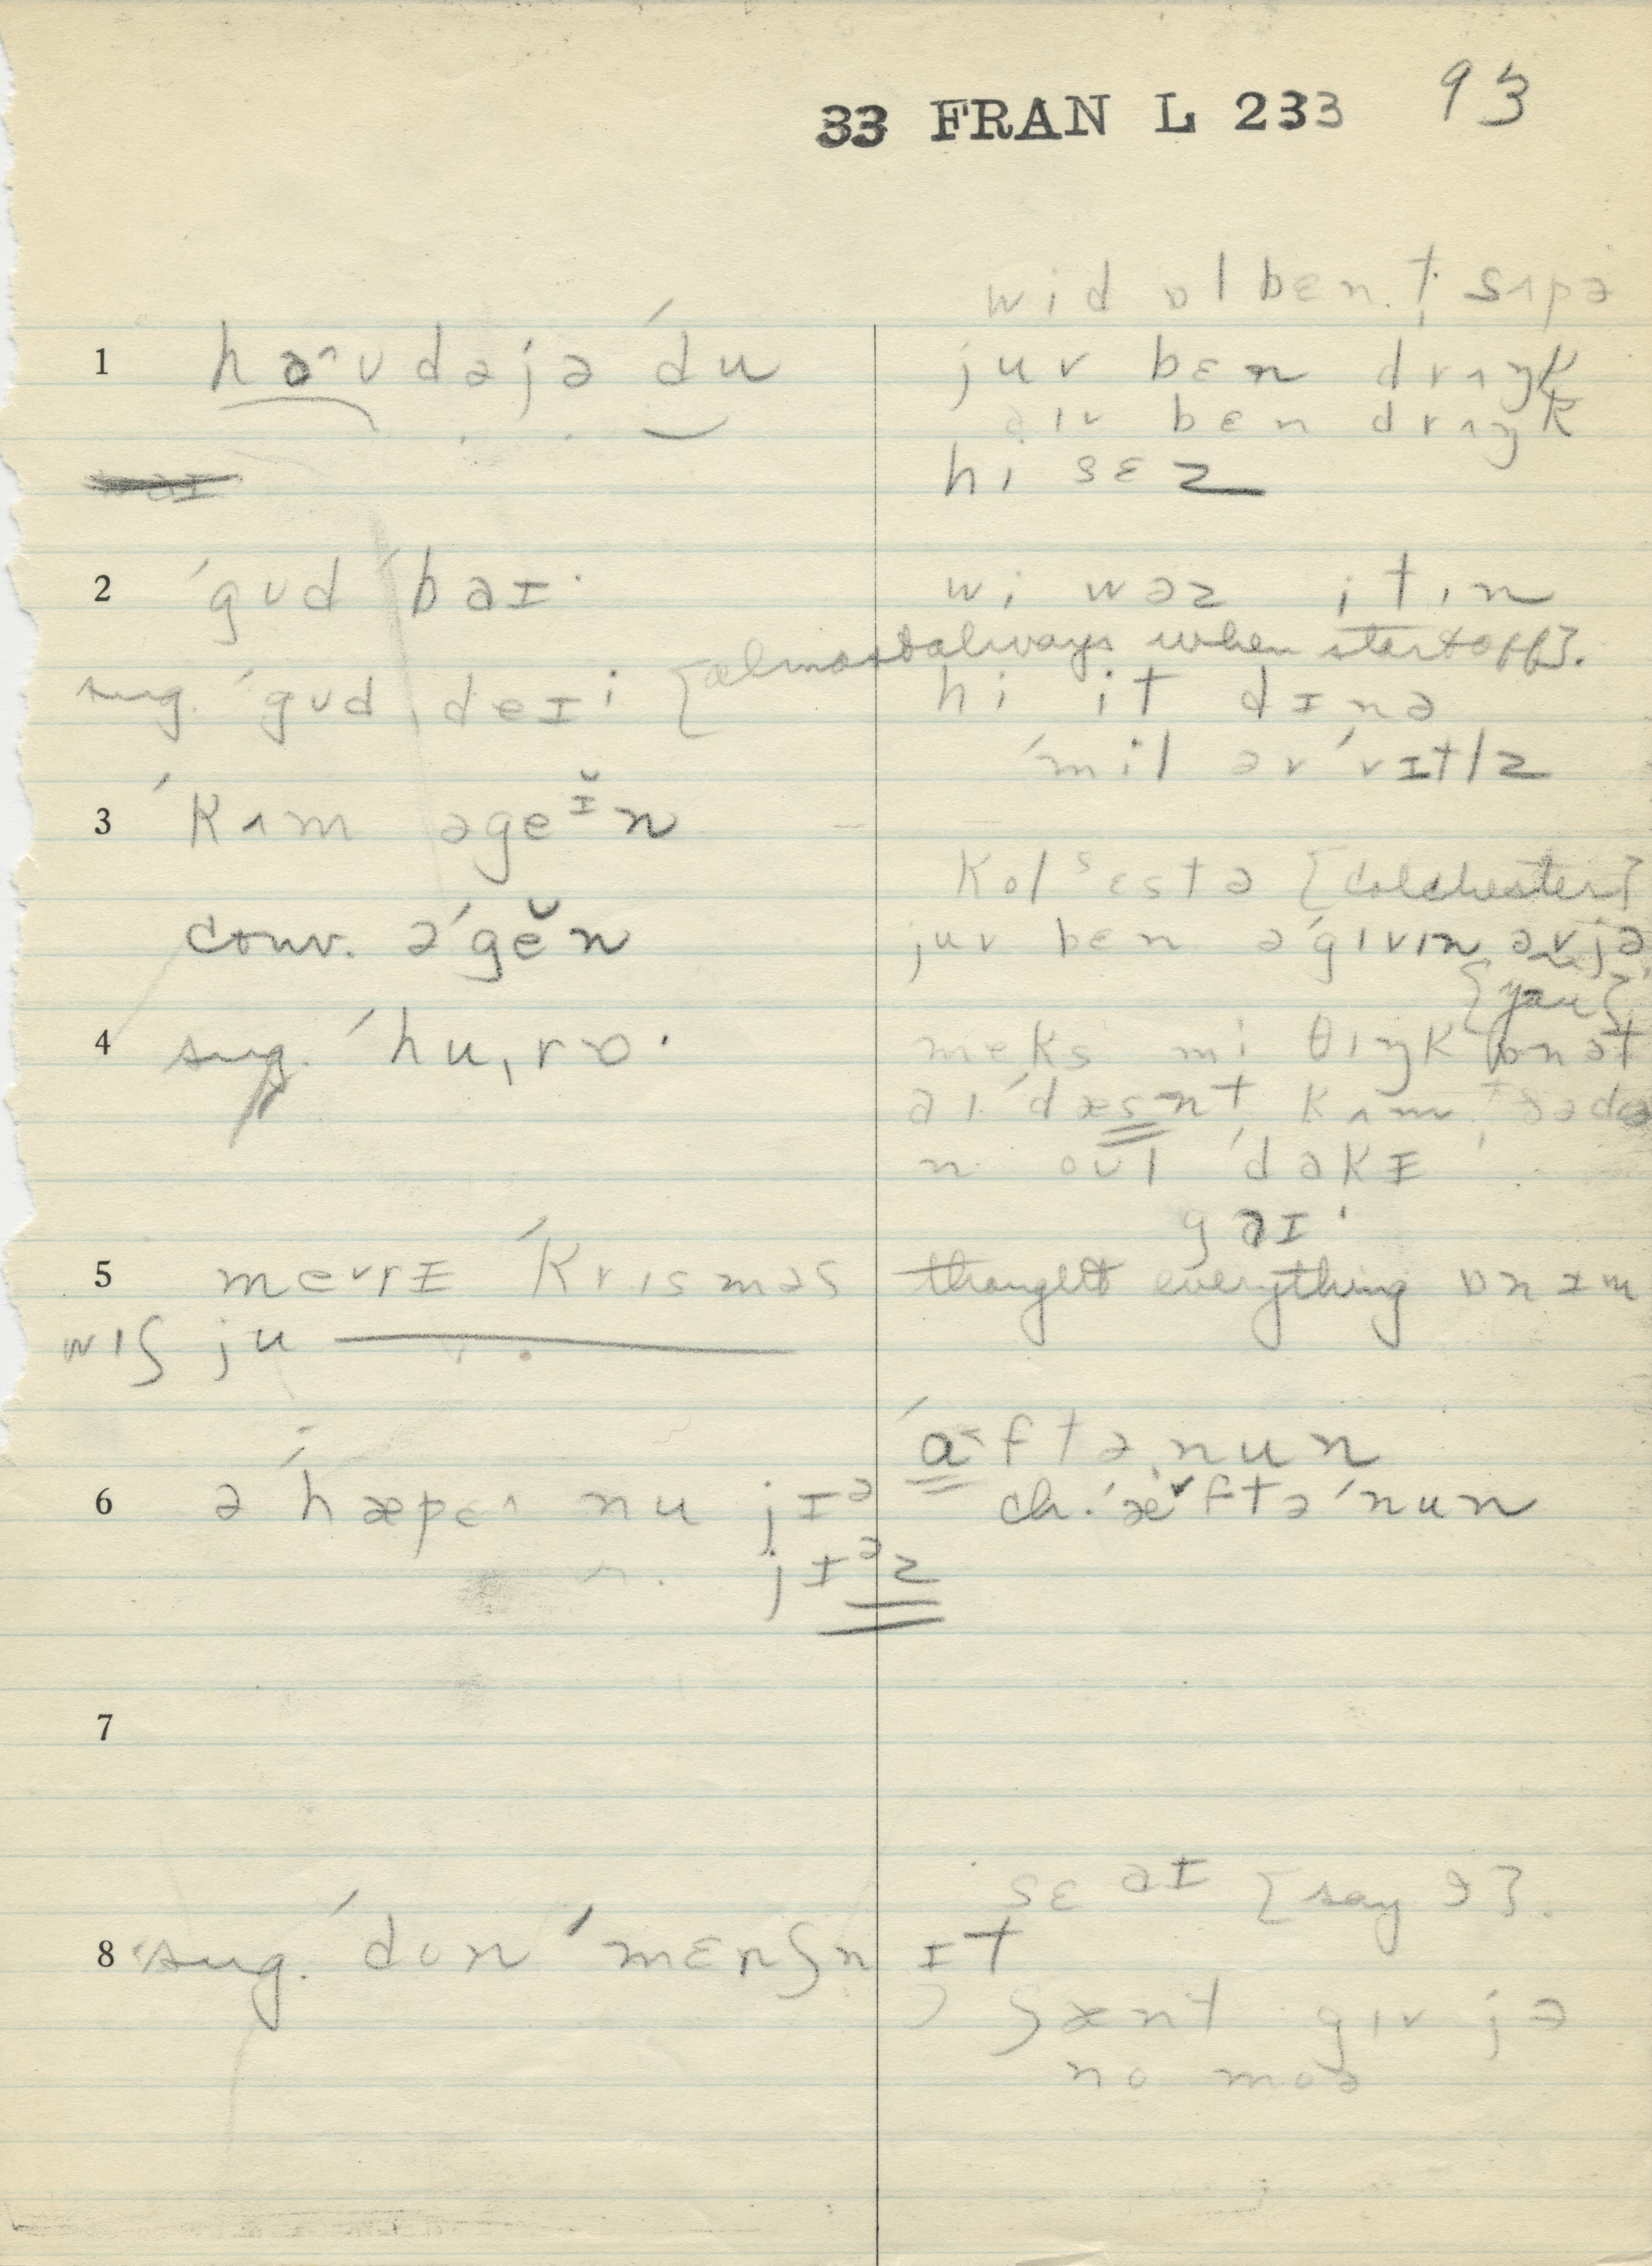 33 FRAN L 233 93
1 həˆʊdəjə ́du
2 ́gʊd ́baɪ·
sug. ́gʊd ˌdeɪi {almost always when start off}.
3 ́kʌm əgeɪ̆n
conv. ə ́gĕn
4 sug. ́huˌrɒ·
5 merrɪ ́krısməs
wıʃ ju
6 ə ́hæpɛˆ nu jɪᵊ
jɪᵊz
7
8 sug. ́don ́mɛnʃn ɪt
wid ɒl bɛn t sʌpə
juv bɛn drʌŋk
aıv bɛn drʌŋk
hi sɛz
wi wəz itın
hi it dɪnə
́mil əv ́vɪtlz
kolˢɛstə {Colchester}
juv bɛn ə ́gıvın əvjə
{you}
meks mi θıŋk ɒnət
aı ́dæsnt kʌm
n oul ́dəkɪ
gaɪ·
thought everything ɒnɪm
́a˂ftəˌnun
ch. ́æ˅ftə ́nun
sɛ aɪ {say I}.
ʃænt gıv jə
no moə